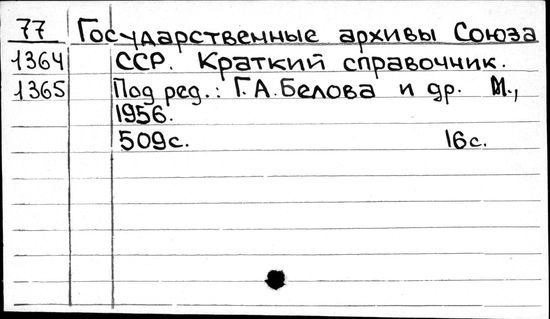 77 Государственные архивы Союза
1364 ССР. Краткий справочник.
1365 Под ред.: Г.А.Белова и др. М.,
1956.
509с. 16с.